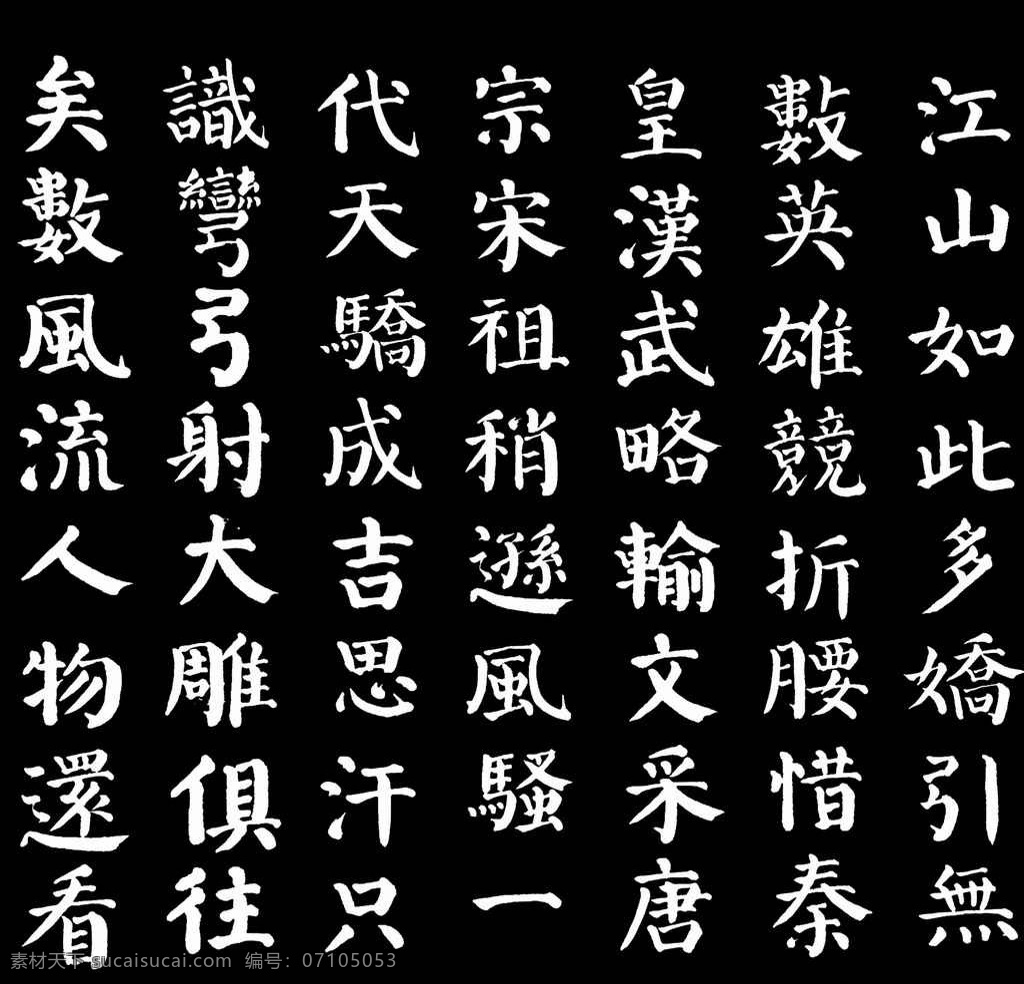 江山如此多嬌引無
數英雄競折腰惜秦
皇漢武略輸文采唐
宗宋祖稍遜風騷一
代天驕成吉思汗只
識彎弓射大雕俱往
矣數風流人物還看
素材天下 sucaisucai.com 编号：07105053